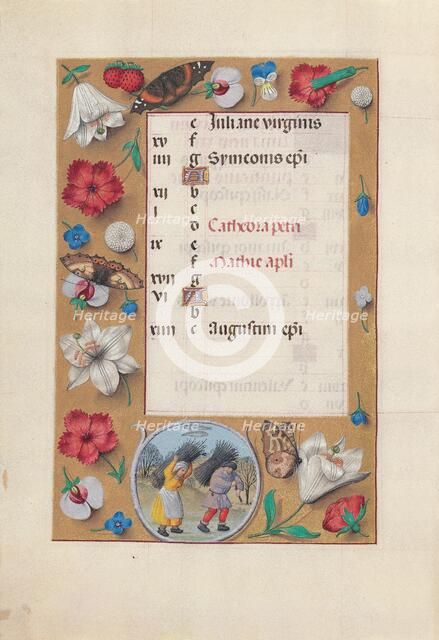 c Iuliane virginis
xv f
iiii g Symeonis epi
A
xii b
i c
d Cathedra petri
ix e
f Mathie apli
xvii g
vi A
b
xiiii c Augustini epi
Heritage Heritage Heritage
Heritage Heritage Heritage
Heritage Heritage Heritage